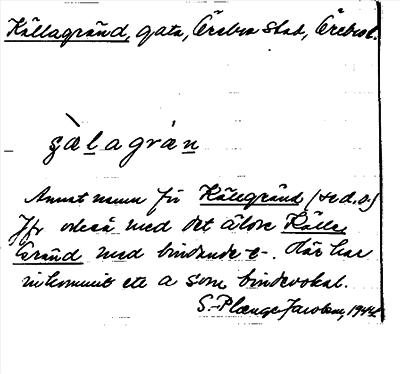 Källagränd, gata, Örebro stad, Örebro l.
çàlagrán
Annat namn för Källegränd (se d.o.)
Jfr också med det äldre Källe
Gränd med bindande -e-. Här har
inkommit ett a som bindevokal.
S. Plænge Jacobson, 1944